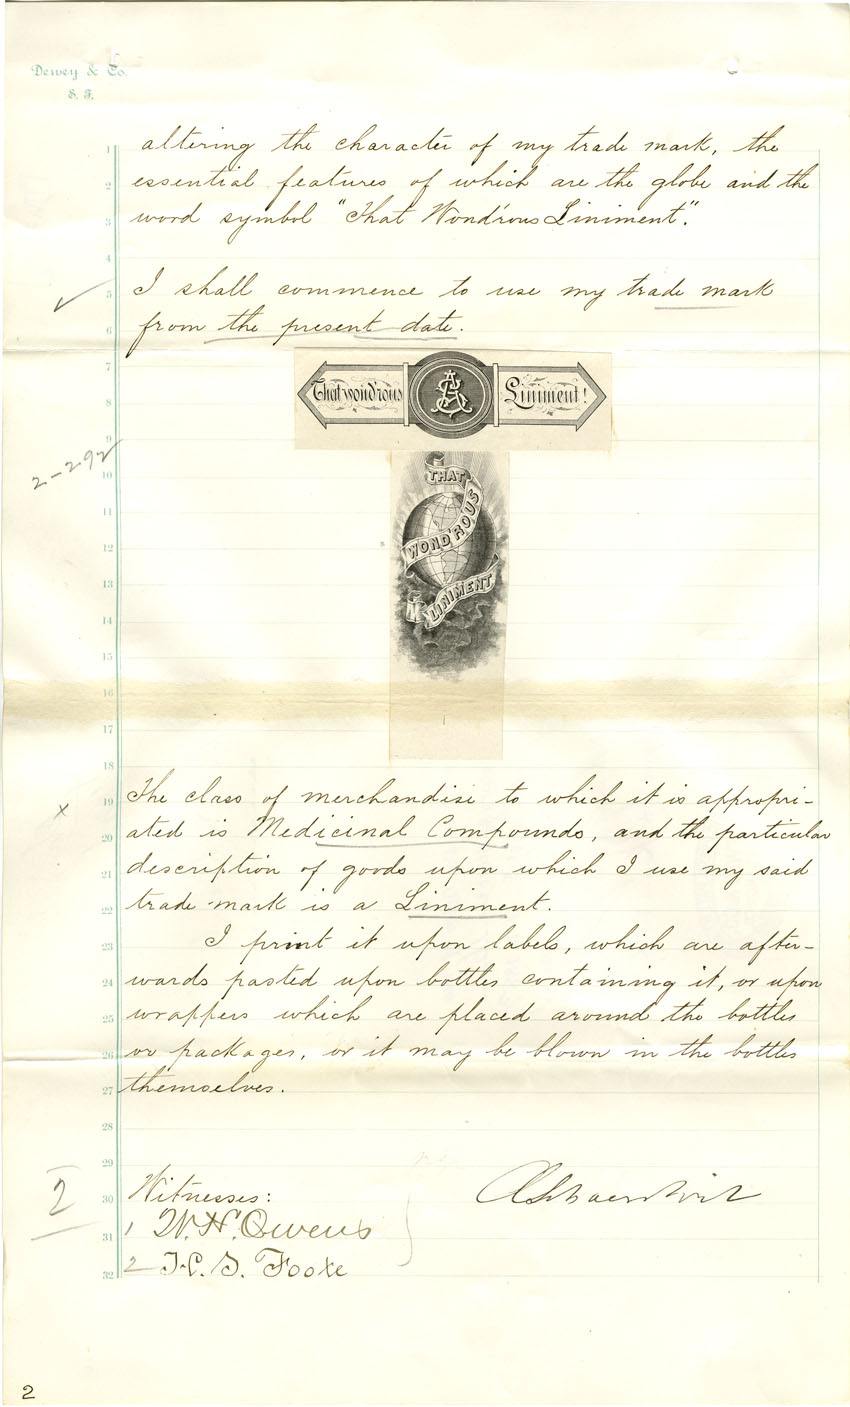 Dewey & Co.
S. F.
altering the character of my trade mark, the
essential features of which are the globe and the
word symbol "That Wond'rous Liniment".
I shall commence to use my trade mark
from the present date.
That wond'rous Liniment!
2-292
THAT
WOND'ROUS
LINIMENT
The class of merchandise to which it is appropri-
ated is Medicinal Compounds, and the particular
description of goods upon which I use my said
trade mark is a Liniment.
I print it upon labels, which are after-
wards pasted upon bottles containing it, or upon
wrappers which are placed around the bottles
or packages, or it may be blown in the bottles
themselves.
2
Witnesses:
1 W. H. Owens
2 H. S. Foote
1
2
3
4
5
6
7
8
9
10
11
12
13
14
15
16
17
18
19
20
21
22
23
24
25
26
27
28
29
30
31
32
2